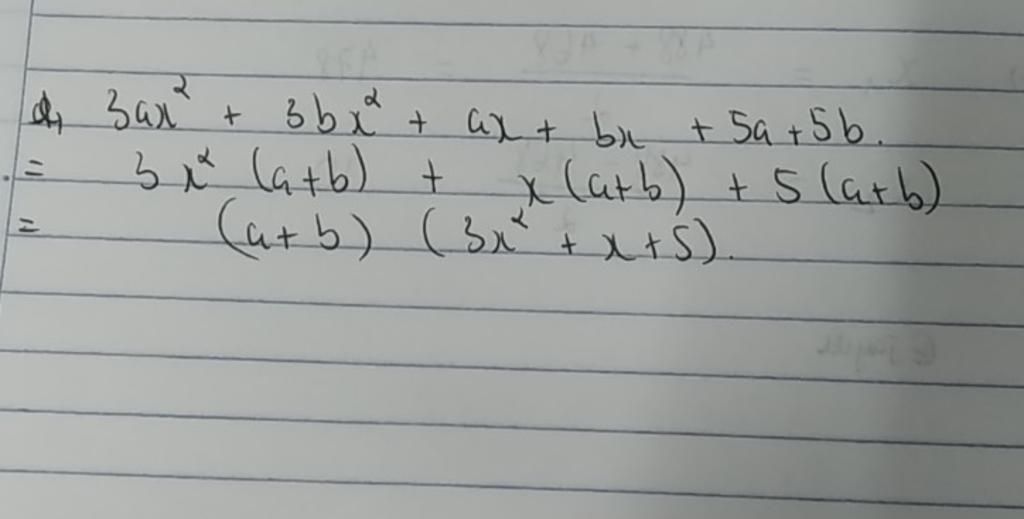 d, 3ax² + 3bx² + ax + bx + 5a + 5b.
= 3x² (a+b) + x(a+b) + 5 (a+b)
= (a+b) (3x² + x + 5).